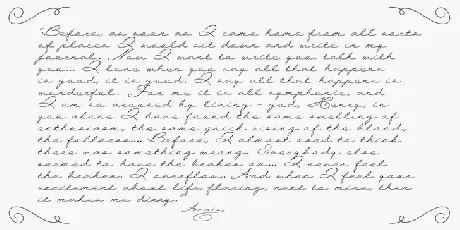 "Before, as soon as I came home from all sorts
of places I would sit down and write in my
journal. Now I want to write you, talk with
you... I love when you say all that happens
is good, it is good. I say all that happens is
wonderful. For me it is all symphonic, and
I am so aroused by living - god, Henry, in
you alone I have found the same swelling of
enthusiasm, the same quick rising of the blood,
the fullness... Before, I almost used to think
there was something wrong. Everybody else
seemed to have the brakes on... I never feel
the brakes. I overflow. And when I feel your
excitement about life flaring, next to mine, then
it makes me dizzy."
Anais